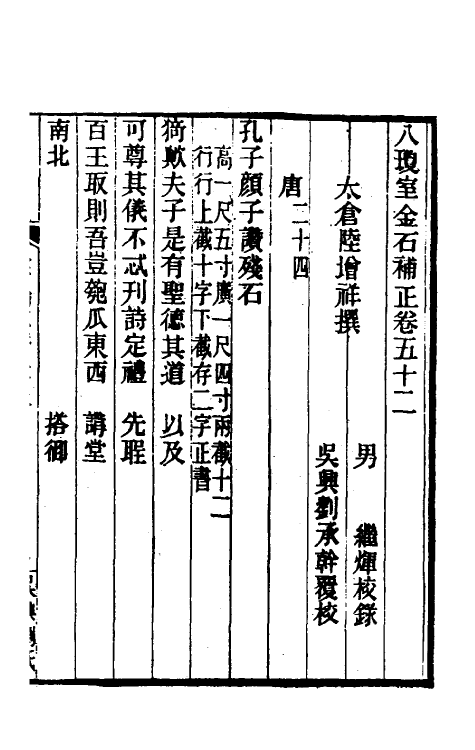 八瓊室金石補正卷五十二
太倉陸增祥撰
男　繼煇校錄
吳興劉承幹覆校
唐二十四
孔子顏子讚殘石
高一尺五寸廣一尺四寸兩截十二
行行上截十字下截存二字正書
猗歟夫子是有聖德其道　以及
可尊其儀不忒刊詩定禮　先聖
百王取則吾豈匏瓜東西　講堂
南北　搭御